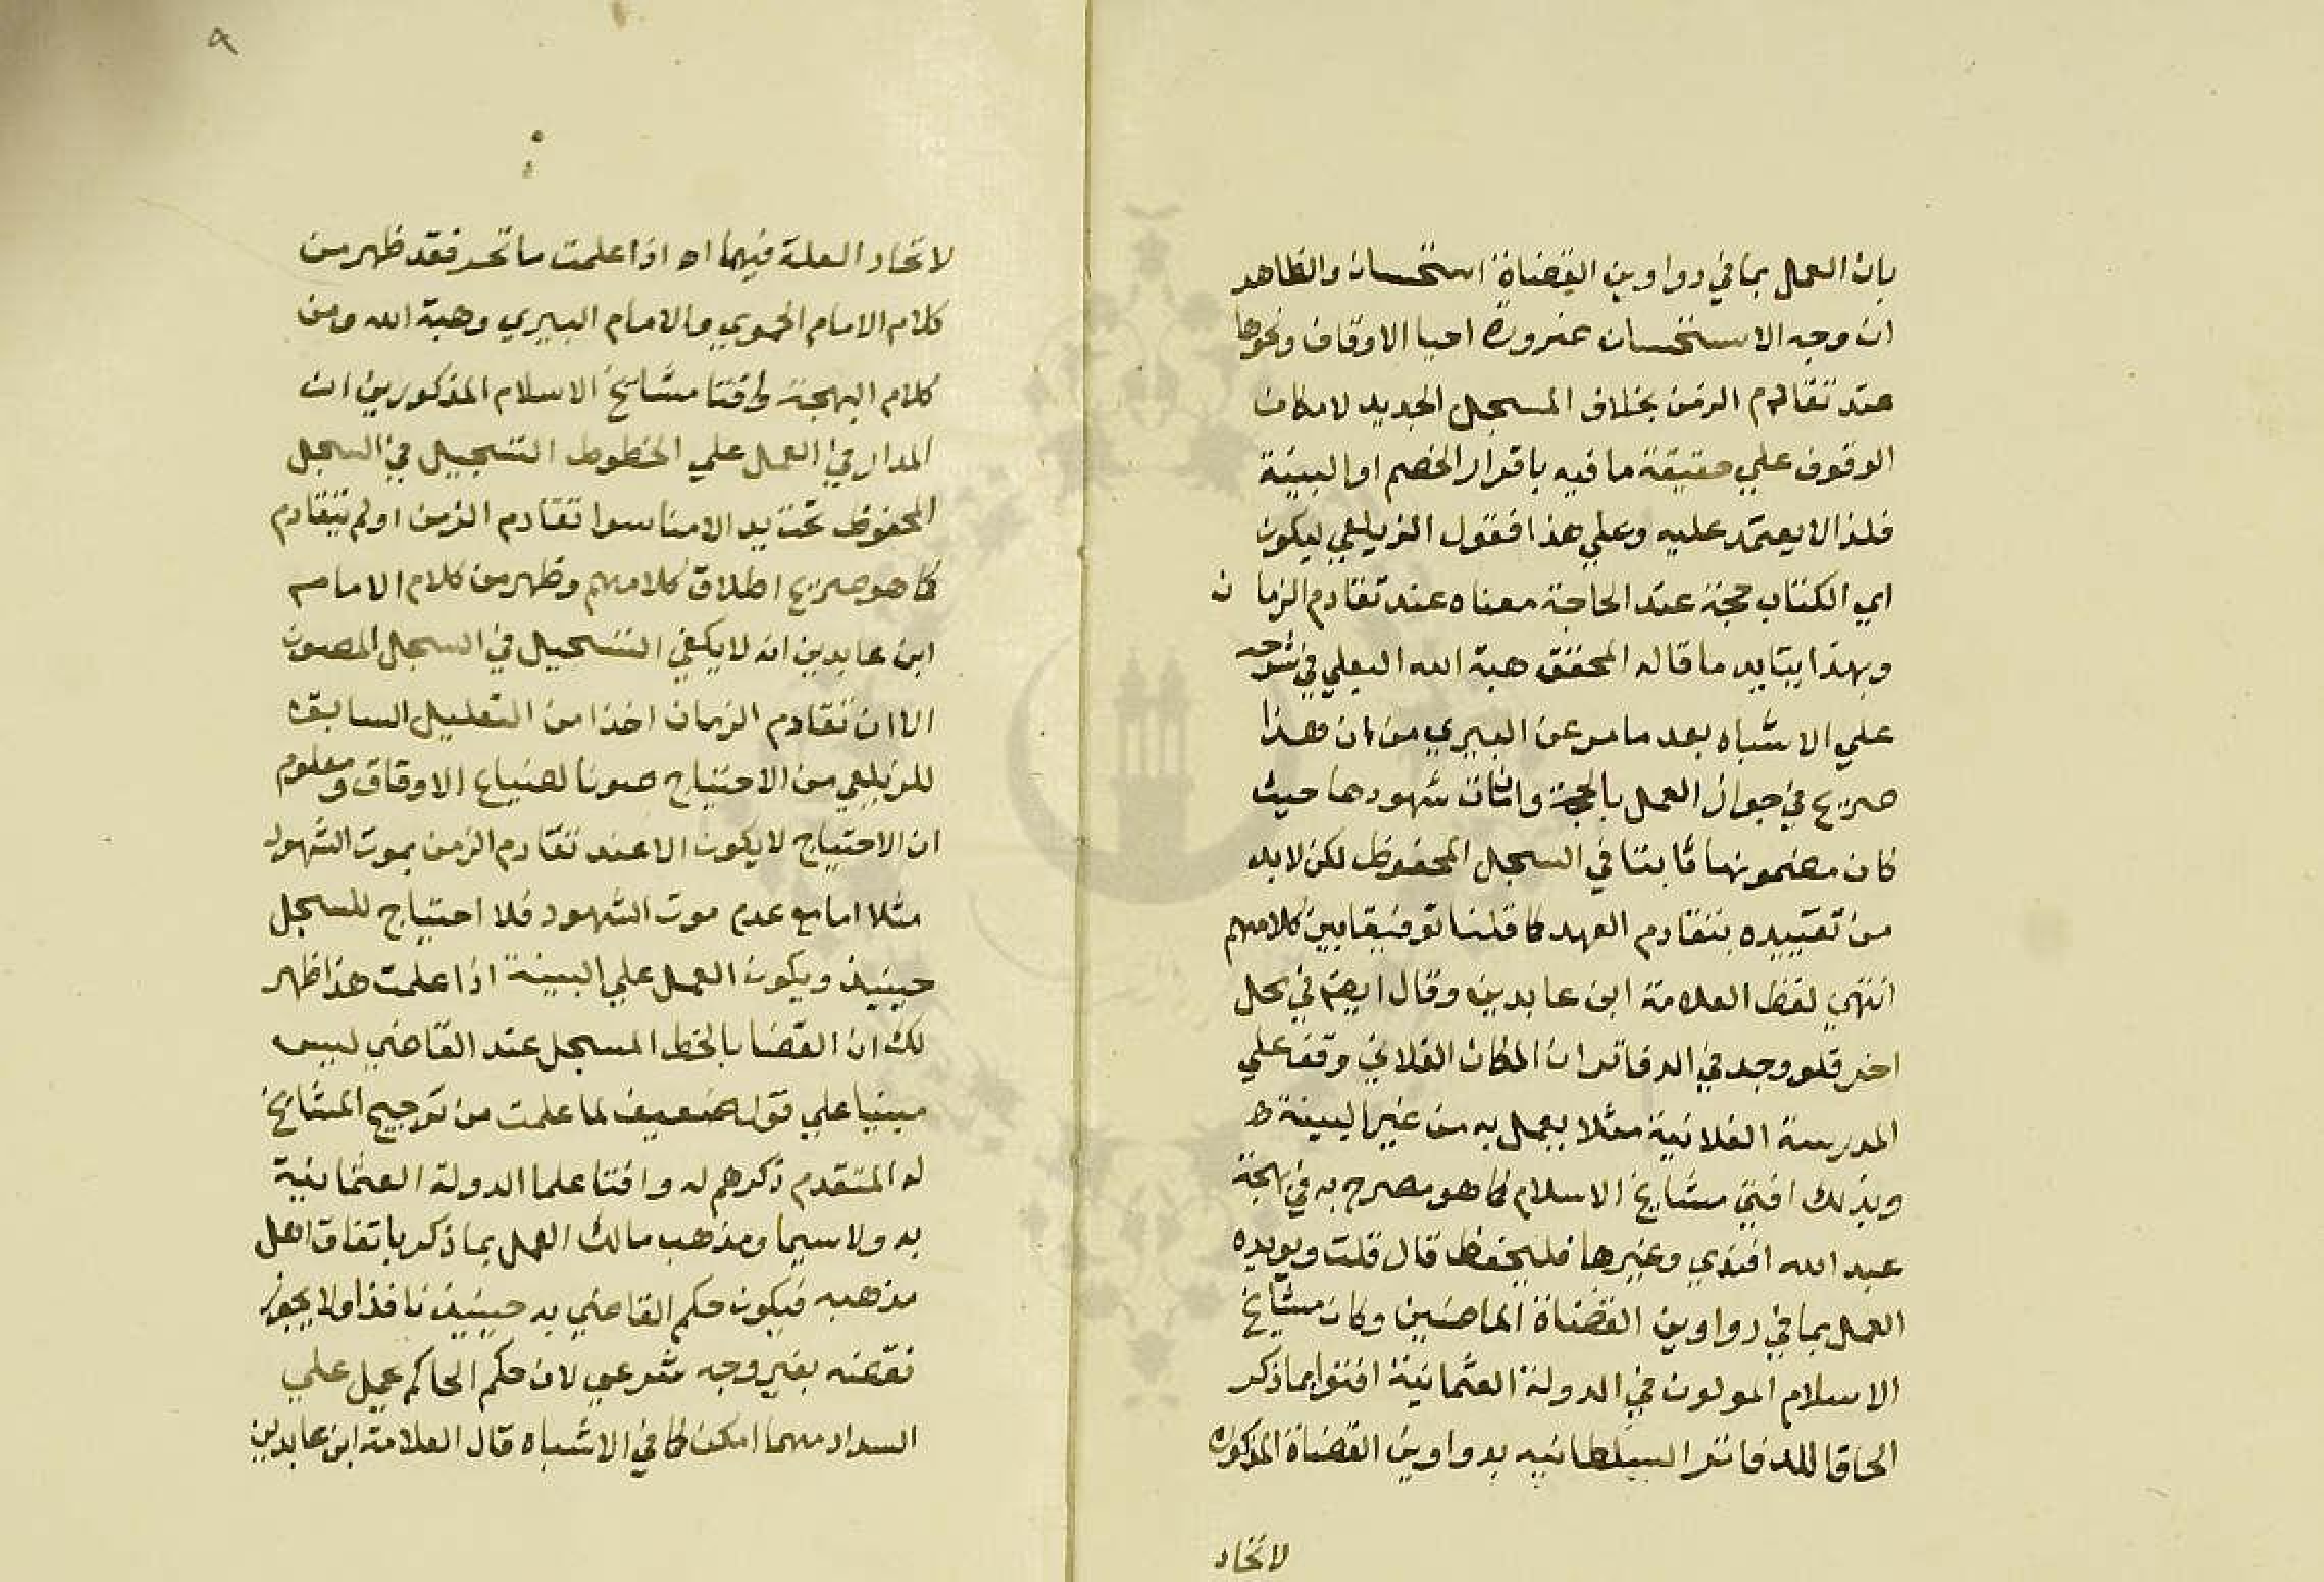 بان العمل بما في دواوين القضاة استحسان والظاهر
ان وجه الاستحسان ضرورة احيا الاوقاف ونحوها
عند تقادم الزمن بخلاف المسجل الجديد لامكان
الوقوف علي حقيقة ما فيه باقرار الخصم او البينة
فلذا لا يعتمد عليه وعلي هذا فقول الزيلعي ليكون
اي الكتاب حجة عند الحاجة معناه عند تقادم الزمان
وبهذا يتايد ما قاله المحقق هبة الله البعلي في شرحه
علي الاشباه بعد ما مر عن البيري من ان هذا
صريح في جواز العمل بالحجة وان مات شهودها حيث
كان مضمونها ثابتا في السجل المحفوظ لكن لا بد
من تقييده بتقادم العهد كما قلنا توفيقا بين كلامهم
انتهي لفظ العلامة ابن عابدين وقال ايضا في محل
اخر فلو وجد في الدفاتر ان المكان الفلاني وقف علي
المدرسة الفلانية مثلا يعمل به من غير البينة ه
وبذلك افتي مشايخ الاسلام كما هو مصرح به في بهجة
عبد الله افندي وغيرها فليحفظ قال قلت ويويده
العمل بما في دواوين القضاة الماضيين وكان مشايخ
الاسلام المولون في الدولة العثمانية افتوا بما ذكر
الحاقا للدفاتر السلطانيه بدواوين القضاة المذكوره
لاتحاد
٩
لاتحاد العلة فيهما اه اذا علمت ما تحرر فقد ظهر من
كلام الامام الحموي والامام البيري وهبة الله ومن
كلام البهجة وافتا مشايخ الاسلام المذكورين ان
المدار في العمل علي الخطوط التسجيل في السجل
المحفوظ تحت يد الامنا سوا تقادم الزمن او لم يتقادم
كما هو صريح اطلاق كلامهم وظهر من كلام الامام
ابن عابدين انه لا يكفي التسجيل في السجل المصون
الا ان تقادم الزمان اخذا من التعليل السابق
للزيلعي من الاحتياج صونا لضياع الاوقاف ومعلوم
ان الاحتياج لا يكون الا عند تقادم الزمن بموت الشهود
مثلا اما مع عدم موت الشهود فلا احتياج للسجل
حينيذ ويكون العمل علي البينة اذا علمت هذا ظهر
لك ان القضا بالخط المسجل عند القاضي ليس
مبنيا علي قول ضعيف لما علمت من ترجيح المشايخ
له المتقدم ذكرهم له وافتا علما الدولة العثمانية
به ولا سيما ومذهب مالك العمل بما ذكر باتفاق اهل
مذهبه فيكون حكم القاضي به حينيذ نافذا ولا يجوز
نقضه بغير وجه شرعي لان حكم الحاكم يحمل علي
السداد مهما امكن كما في الاشباه قال العلامة ابن عابدين